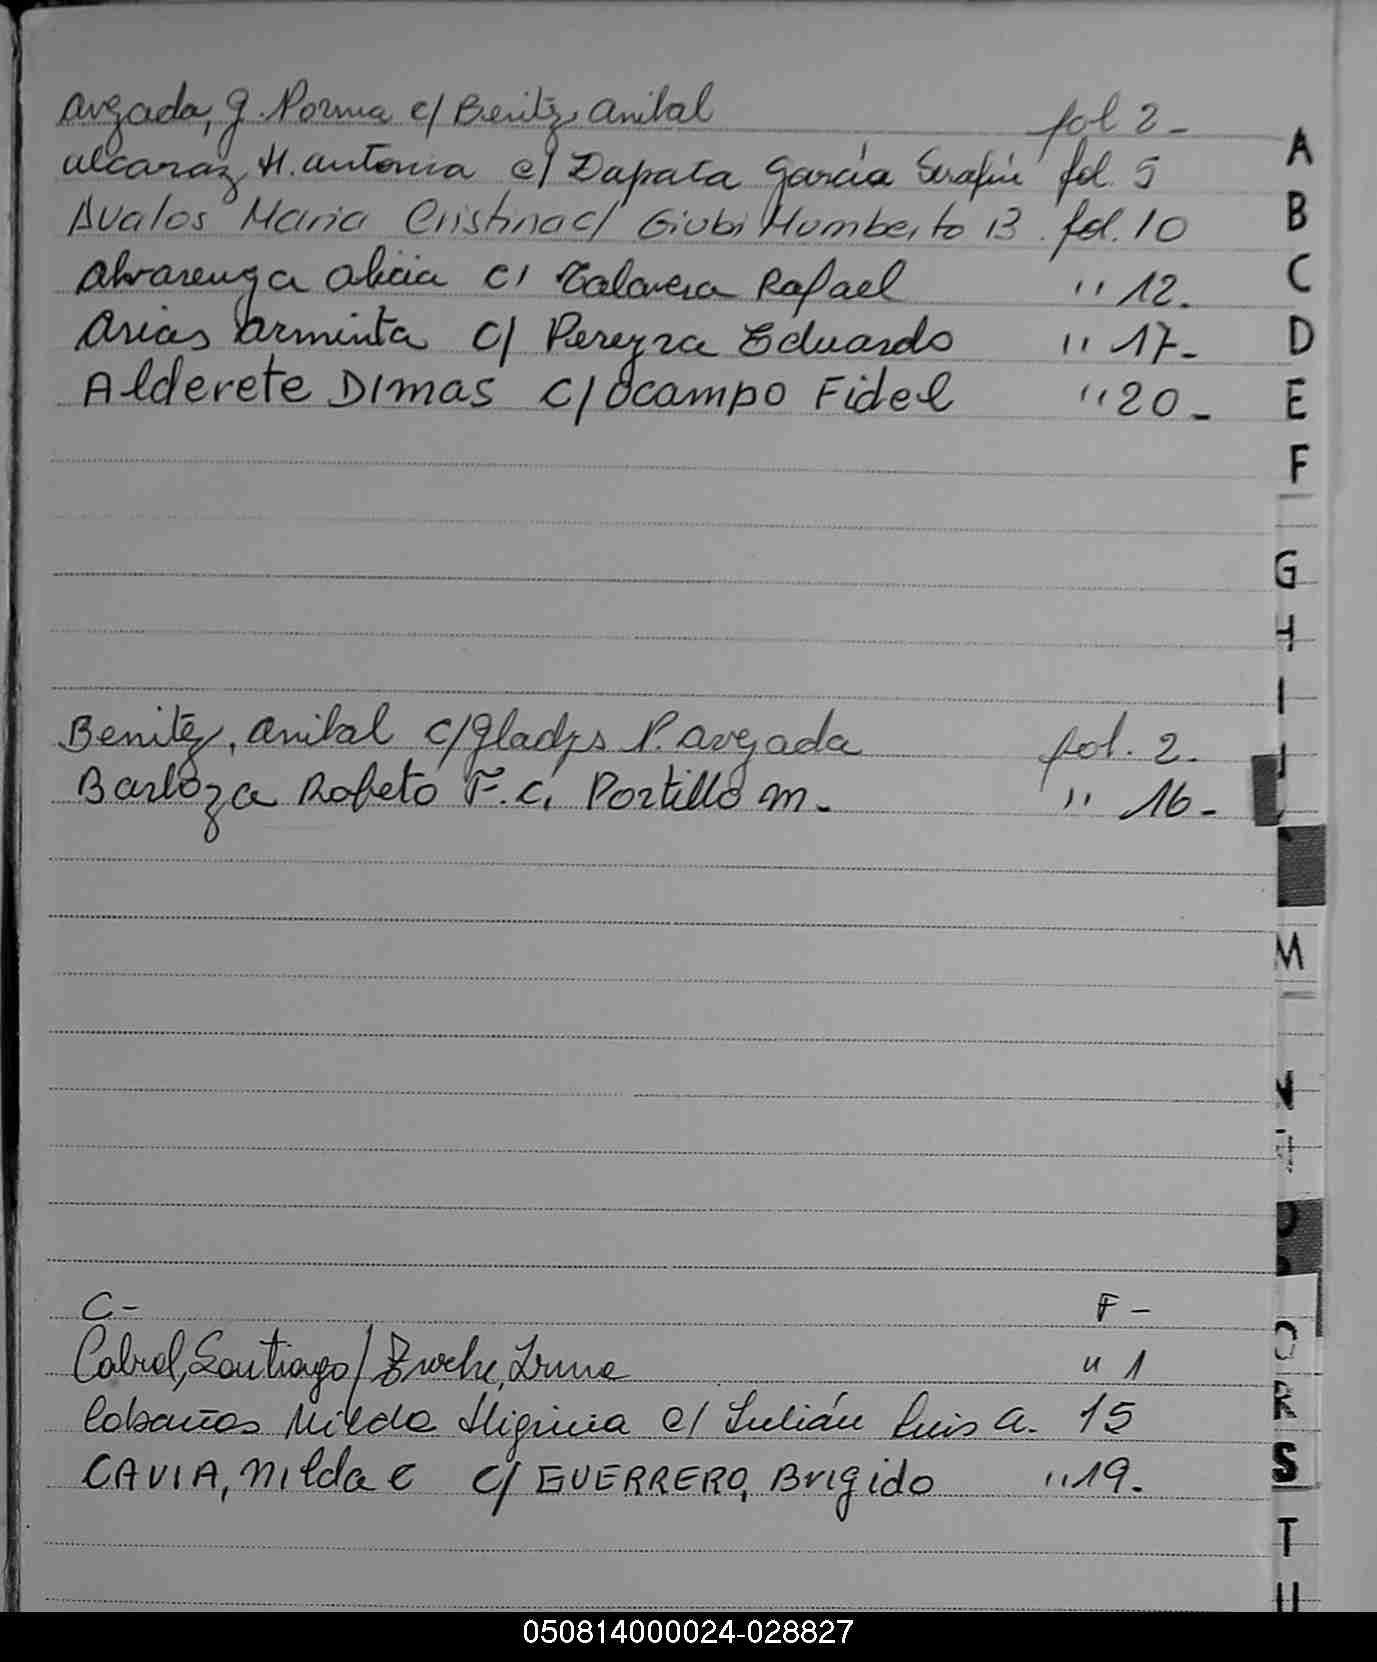 Avezada, G. Norma c/ Benitez, Anibal fol 2-
Alcaraz, H. Antonia c/ Zapata García Serafín fol. 5
Avalos Maria Cristina c/ Giubi Humberto B. fol. 10
Alvarenga Alicia c/ Talavera Rafael " 12.
Arias Arminta c/ Pereyra Eduardo " 17-
Alderete Dimas c/ Ocampo Fidel " 20-
Benitez, Anibal c/ Gladys N. Avezada fol. 2.
Barboza Roberto F. c/ Portillo M. " 16-
C- F-
Cabral, Santiago/ Irma " 1
Cabañas Nilda Higinia c/ Julián Luis A. 15
CAVIA, Nilda E c/ GUERRERO, Brigido " 19.
A
B
C
D
E
F
G
H
I
J
M
N
O
R
S
T
U
050814000024-028827